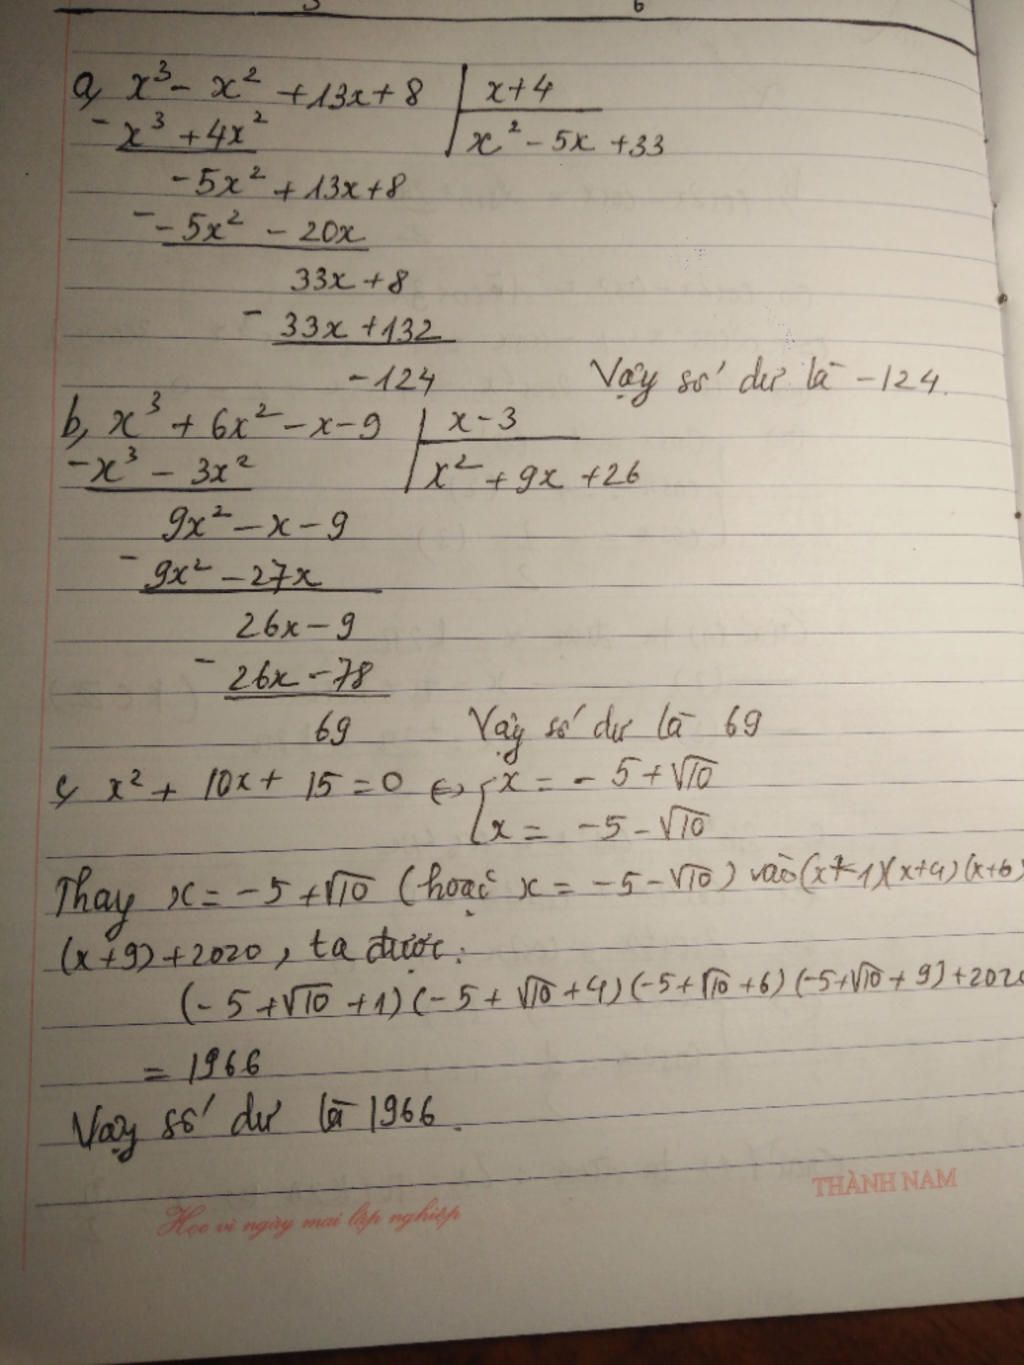 a, x³ - x² + 13x + 8 | x + 4
- x³ + 4x² | x² - 5x + 33
-5x² + 13x + 8
- -5x² - 20x
33x + 8
- 33x + 132
-124 Vậy số dư là -124.
b, x³ + 6x² - x - 9 | x - 3
- x³ - 3x² | x² + 9x + 26
9x² - x - 9
- 9x² - 27x
26x - 9
- 26x - 78
69 Vậy số dư là 69
c, x² + 10x + 15 = 0 ⇔ [ x = -5 + √10
x = -5 - √10
Thay x = -5 + √10 (hoặc x = -5 - √10) vào (x+1)(x+4)(x+6)
(x+9) + 2020, ta được:
(-5 + √10 + 1)(-5 + √10 + 4)(-5 + √10 + 6)(-5 + √10 + 9) + 2020
= 1966
Vậy số dư là 1966.
THÀNH NAM
Học vì ngày mai lập nghiệp